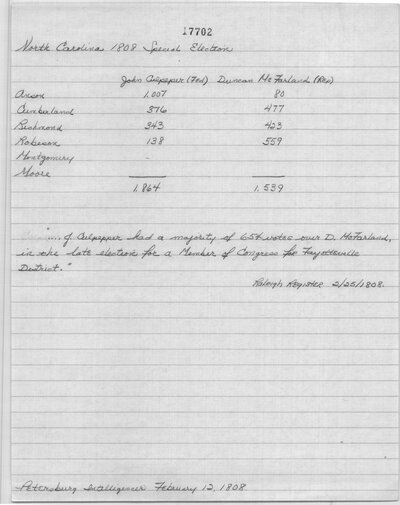 17702
North Carolina 1808 Special Election
John Culpeper (Fed) Duncan McFarland (Rep)
Anson 1,007 80
Cumberland 376 477
Richmond 343 423
Robeson 138 559
Montgomery -
Moore
1,864 1,539
"... J. Culpepper had a majority of 654 votes over D. McFarland,
in the late election for a Member of Congress for Fayetteville
District."
Raleigh Register 2/25/1808.
Petersburg Intelligencer February 12, 1808.